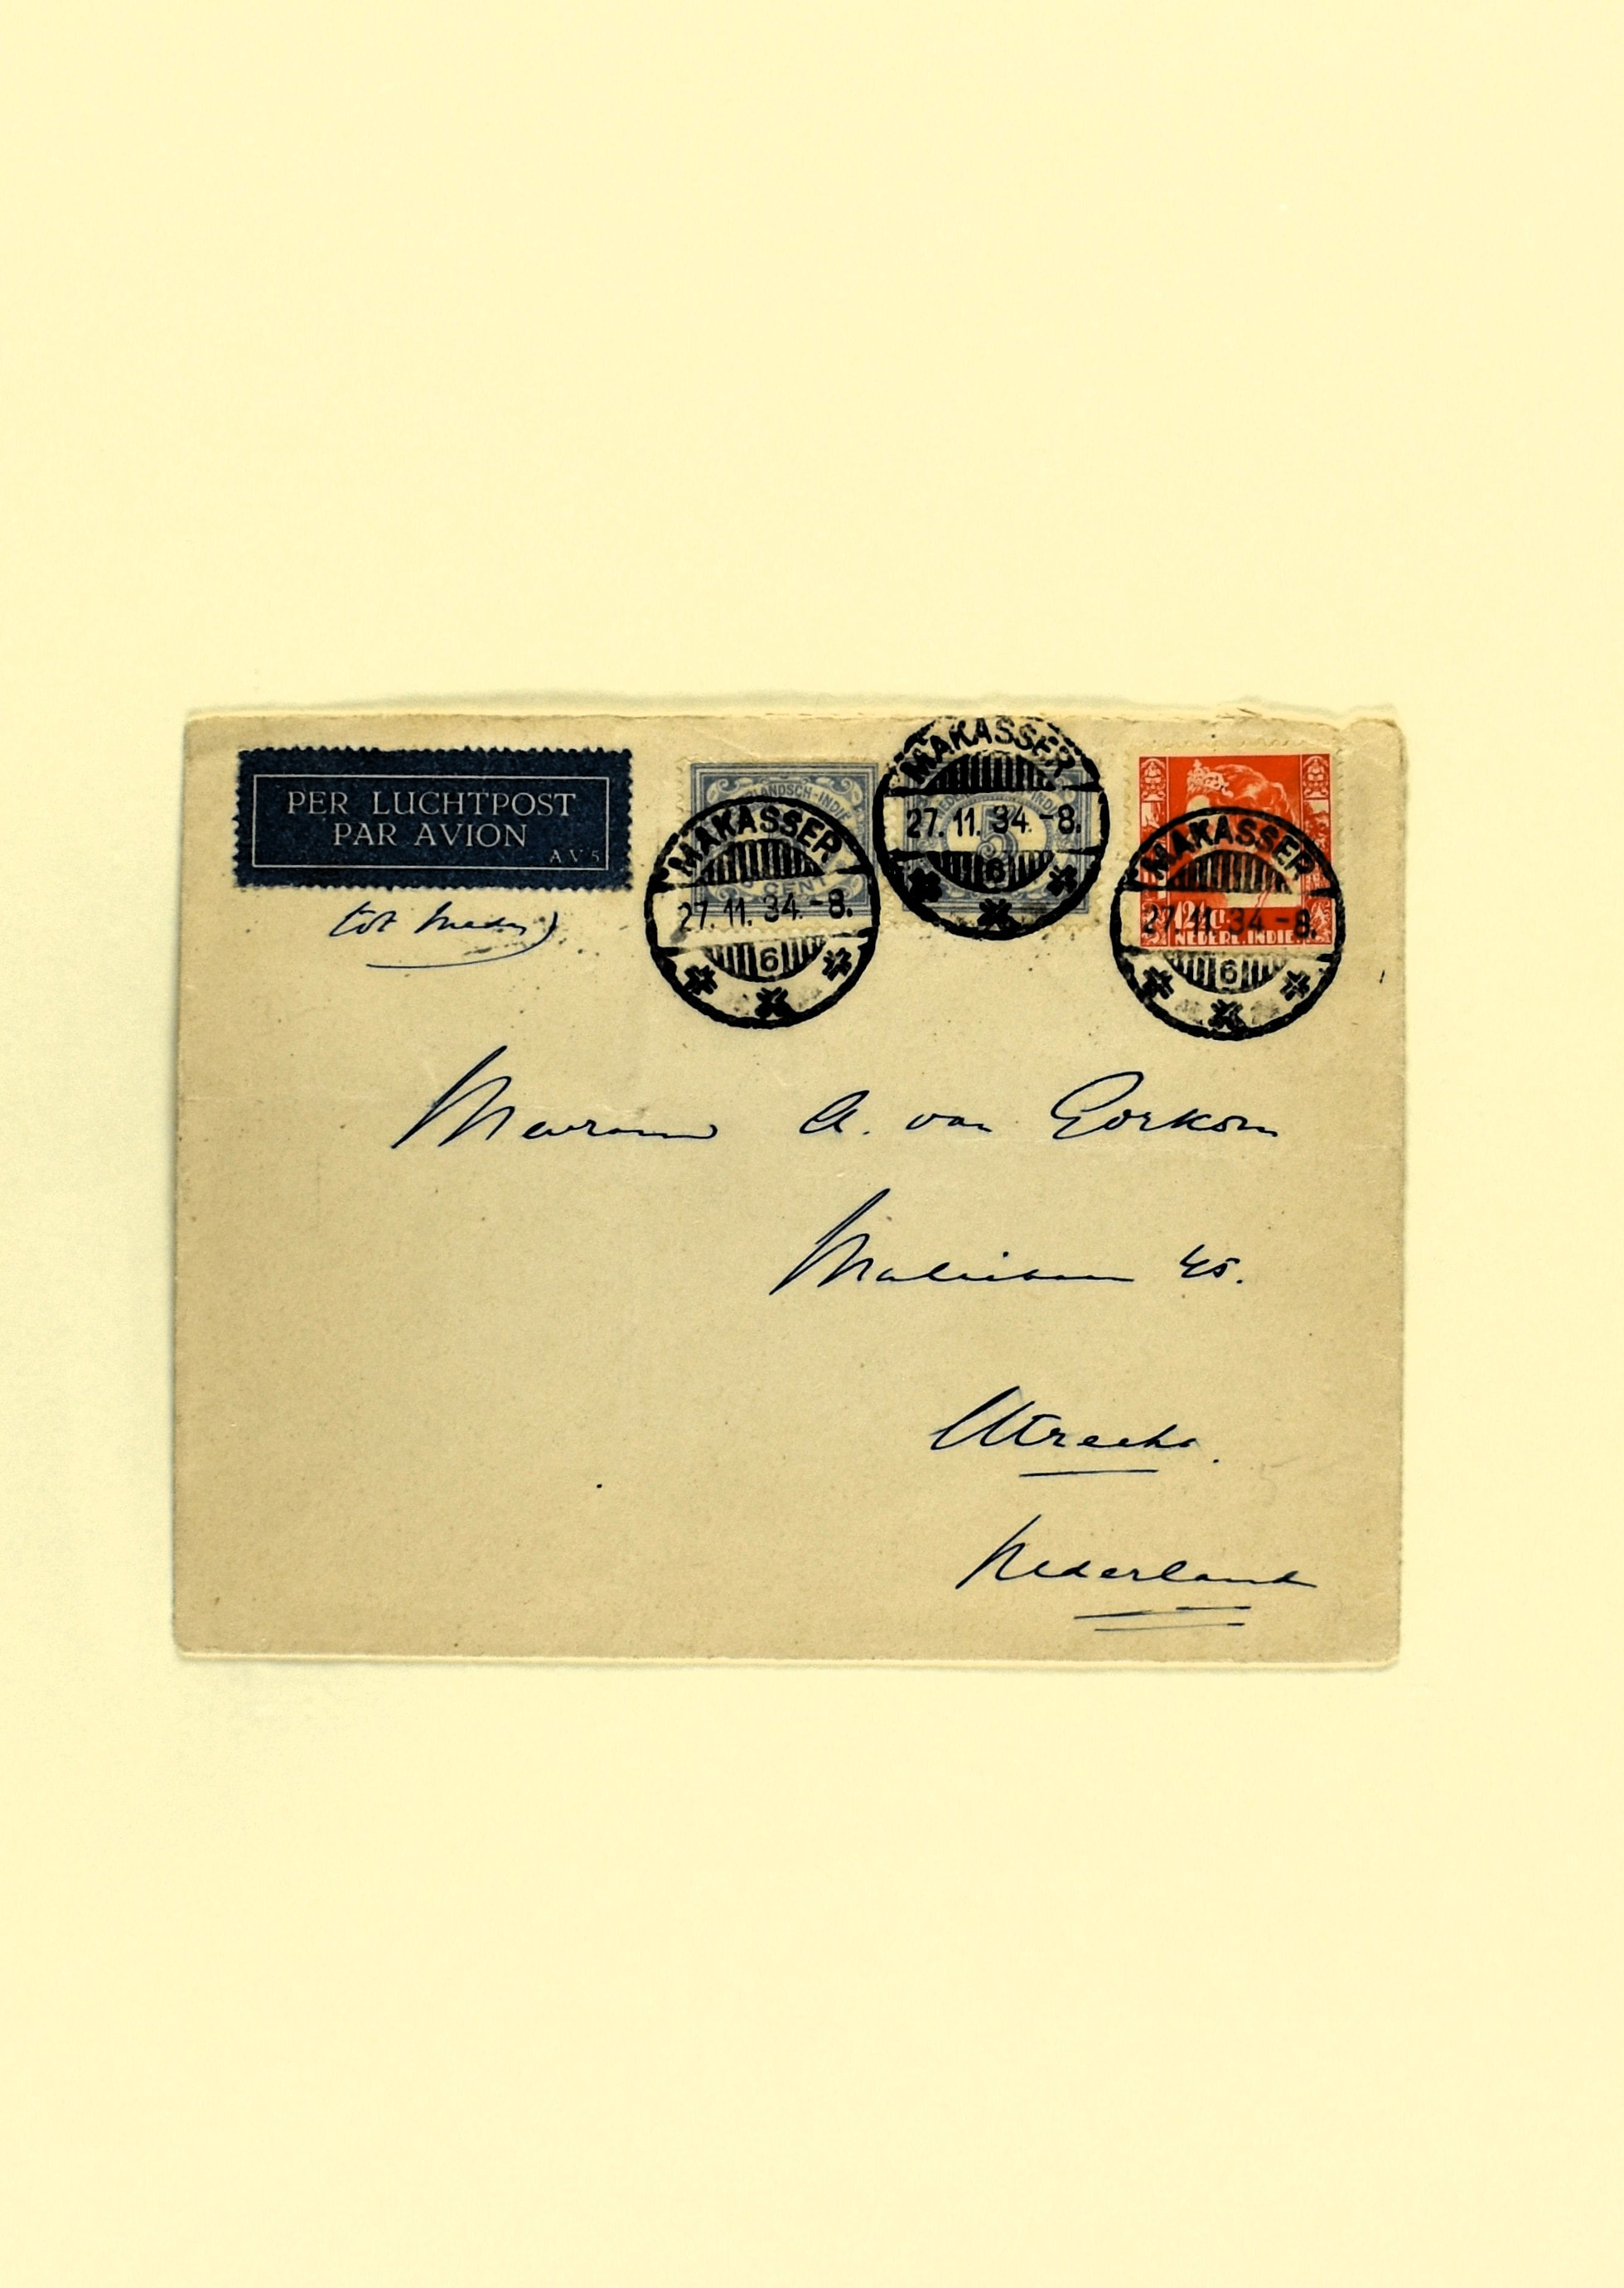 PER LUCHTPOST
PAR AVION
AV5
tot
NEDERLANDSCH-INDIE
CENT
MAKASSER
27.11.34.-8.
6
NEDERL. INDIE
MAKASSER
27.11.34.-8.
6
NEDERL. INDIE
MAKASSER
27.11.34-8.
6
Mevrouw A. van Gorkom
Maliebaan 45.
Utrecht.
Nederland